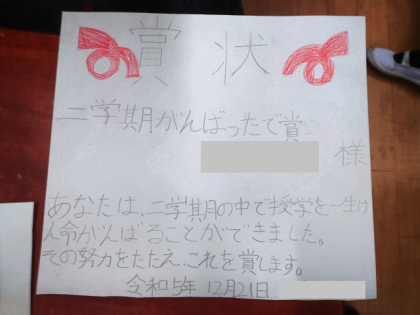 賞状
二学期がんばったで賞
様
あなたは、二学期の中で授学を一生け
ん命がんばることができました。
その努力をたたえ、これを賞します。
令和5年 12月21日